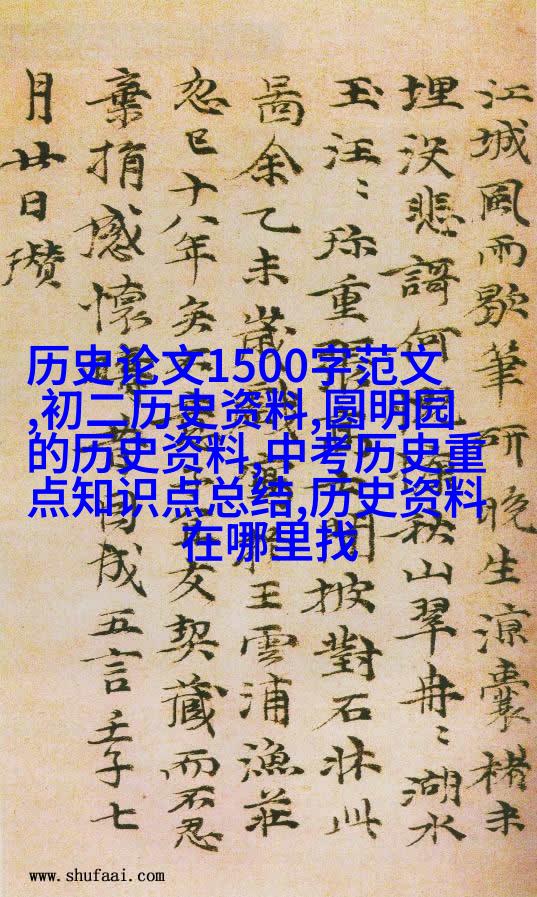 江城風雨歇筆研晚生涼囊楮未
埋没悲謌何秋山翠冉〻湖水
玉汪〻珎重閒披對石牀此
啚余乙未歲王雲浦漁莊
忽已十八年矣友契藏而不忍
棄捐感懷因成五言壬子七
月廿日瓚
历史论文1500字范文
,初二历史资料,圆明园
的历史资料,中考历史重
点知识点总结,历史资料
在哪里找
www.shufaai.com